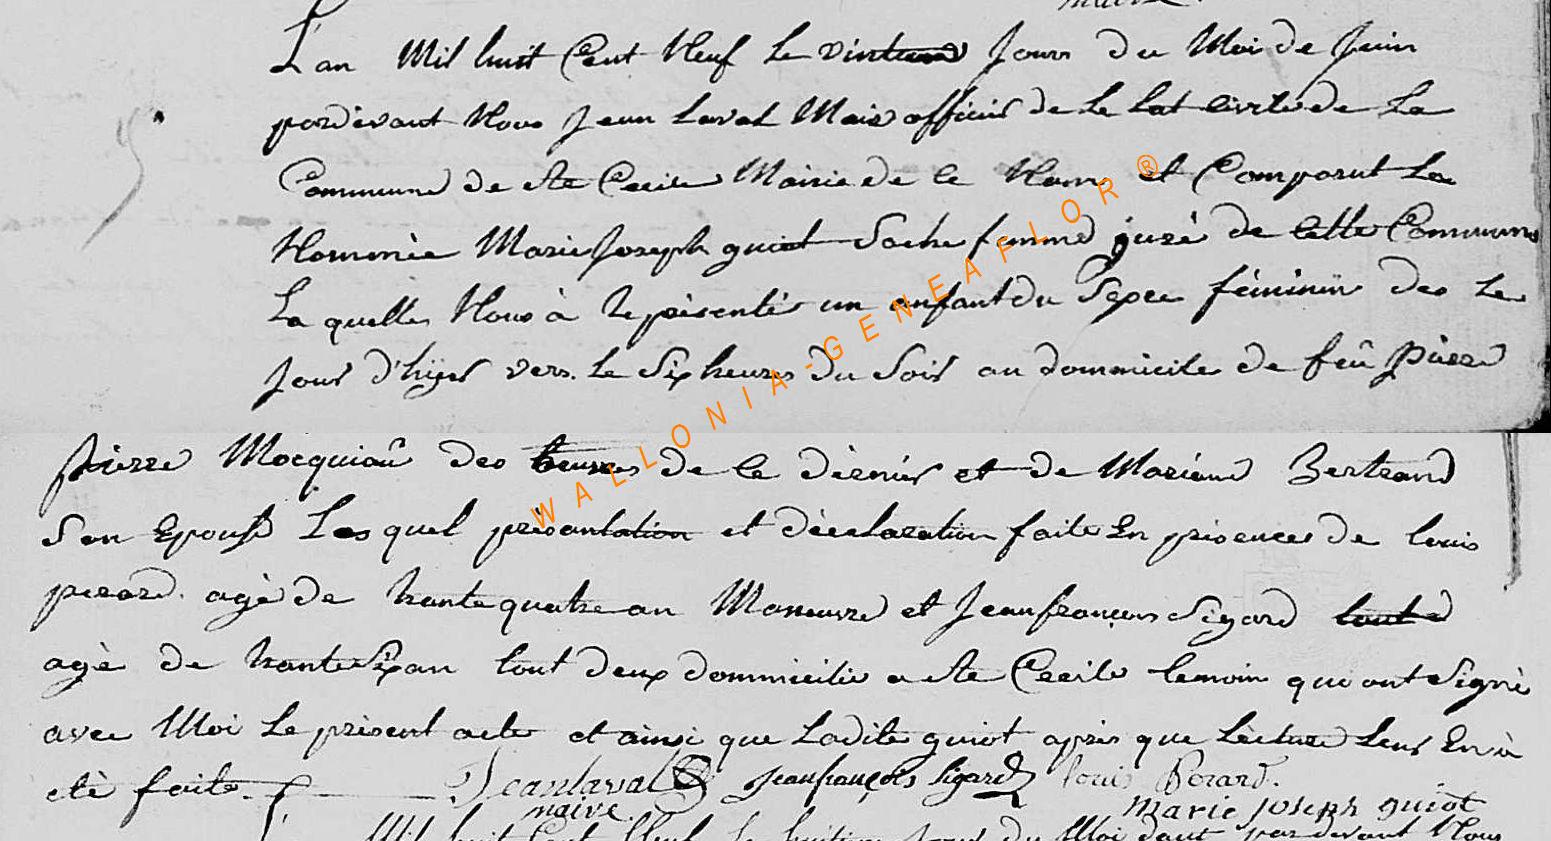 maire
L'an Mil huit Cent Neuf Le vintune Jours du Moi de Juin
pardevant Nous Jean Laval Maire officier de Le Lat civile de La
Commune de Ste Cecile Mairie de Le Nom et Comparut La
Nommèe Marie Joseph guiot Sache femme jurè de Cette Commune
La quelle Nous à Représentèe un enfant du Sexee féminin des Le
Jour d'hijer vers Le Six heures du Soir au dommicile de feû pierre
pierre Mocquiaû des heures de Ce dèrnier et de Mariane Bertrand
Son Epouse Les quel prèsantation et dèeclaration faite En prèsences de louis
perard agè de trante quatre an Maneuvre et Jean françois Sigard
agè de trante Six an tout deux dommiciliè a Ste Cecile temoin qui ont Signè
avec Moi Le prèsent acte et ainsi que Ladite guiot après que Lècture Leur En à
etè faite.
Jean laval Jean françois Sigard louis Perard.
maire Marie Joseph guiot
Mil huit Cent Neuf Le huitiem Jour du Moi daut par devant Nous
WALLONIA-GENEAFLOR®